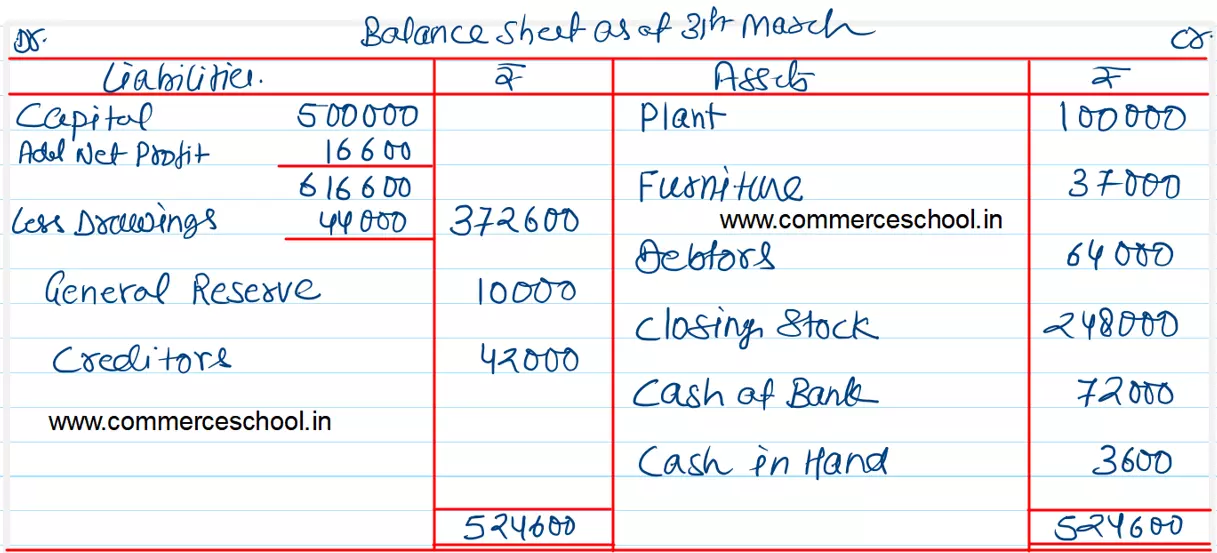 Dr. Balance Sheet as at 31st March Cr.
Liabilities. ₹ Assets ₹
Capital 500000 Plant 100000
Add Net Profit 16600
616600 Furniture 37000
Less Drawings 44000 372600 www.commerceschool.in
Debtors 64000
General Reserve 10000
Closing Stock 248000
Creditors 42000
Cash at Bank 72000
www.commerceschool.in
Cash in Hand 3600
524600 524600